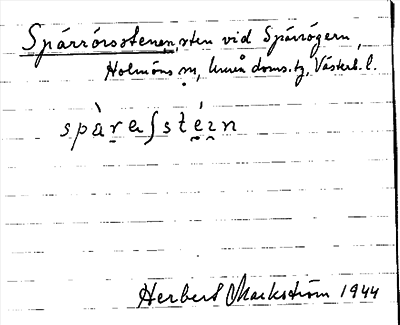 Spárrórsstenen, sten vid Spärrögern,
Holmöns sn, Umeå doms. tg, Västerb. l.
spàreʃstéin
Herbert Markström 1944